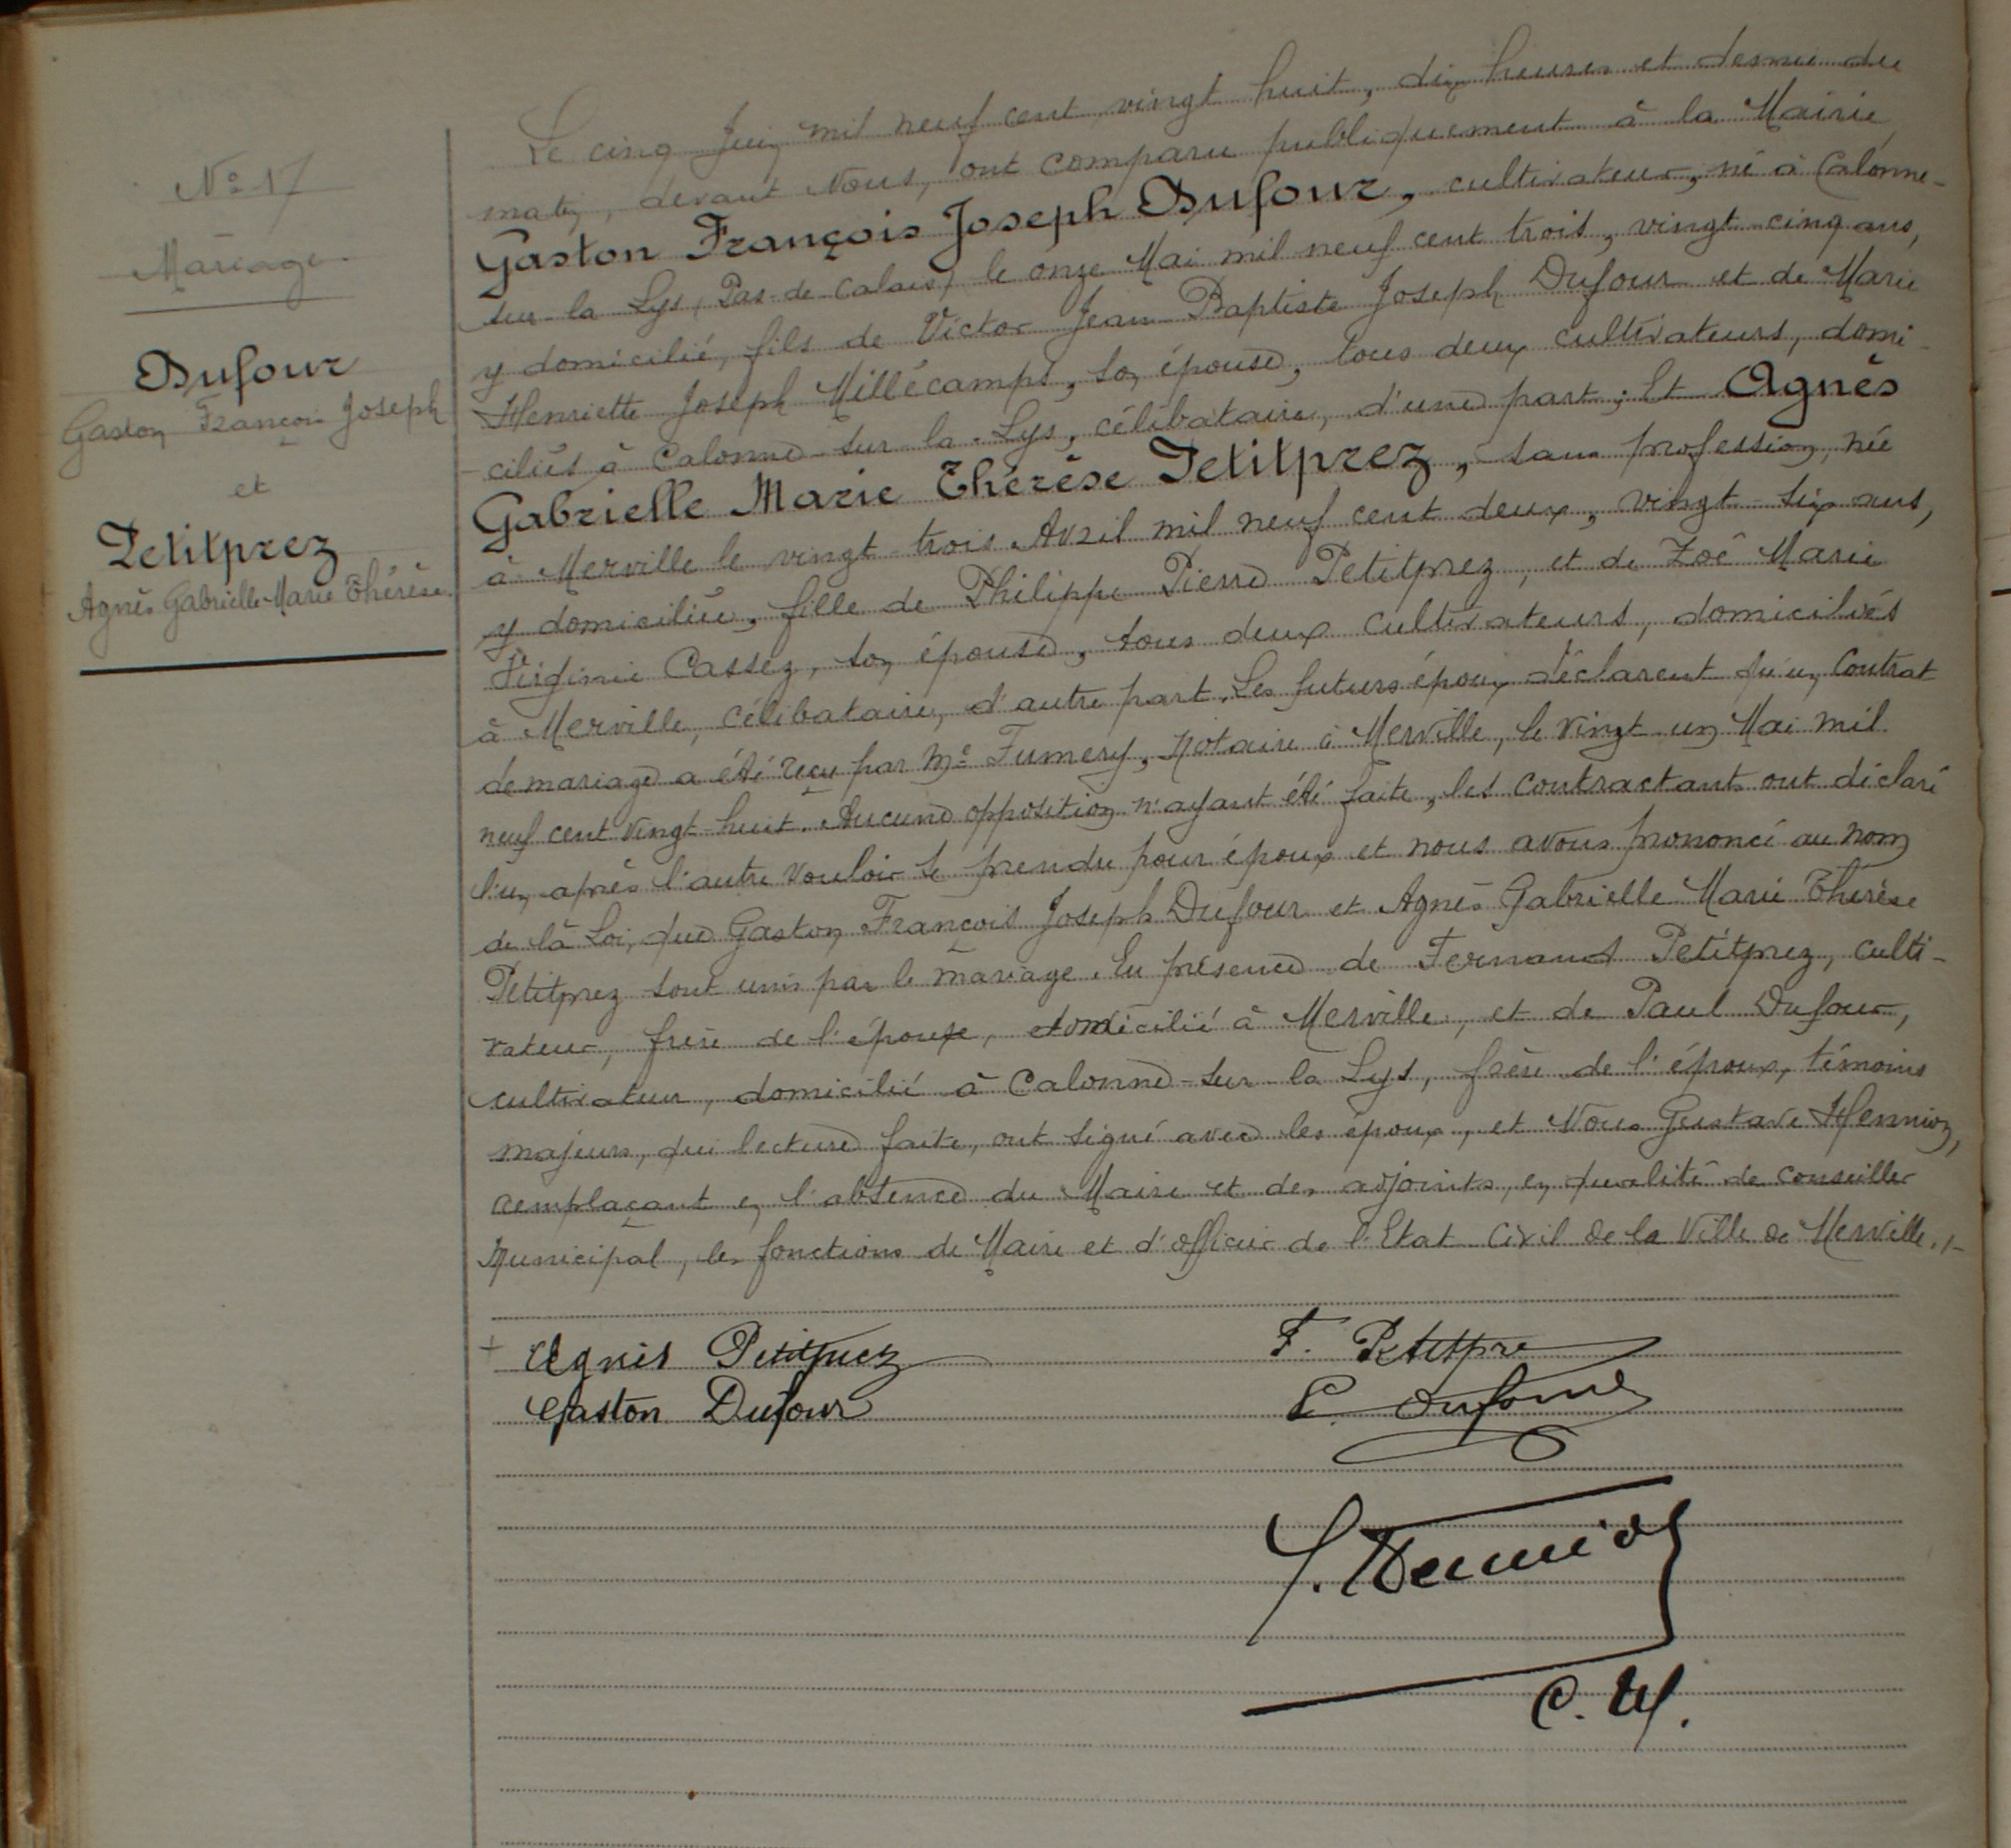 N° 17
Mariage
Dufour
Gaston François Joseph
et
Petitprez
Agnès Gabrielle Marie Thérèse
Le cinq Juin mil neuf cent vingt huit, dix heures et demie du
matin, devant Nous, ont comparu publiquement à la Mairie
Gaston François Joseph Dufour, cultivateur, né à Calonne-
sur-la Lys, Pas-de-Calais, le onze Mai mil neuf cent trois, vingt-cinq ans,
y domicilié, fils de Victor Jean Baptiste Joseph Dufour et de Marie
Henriette Joseph Millécamps, son épouse, tous deux cultivateurs, domi-
-ciliés à Calonne-sur-la-Lys, célibataire, d'une part; Et Agnès
Gabrielle Marie Thérèse Petitprez, sans profession, née
à Merville le vingt-trois Avril mil neuf cent deux, vingt-six ans,
y domiciliée, fille de Philippe Pierre Petitprez, et de Zoé Marie
Virginie Cassez, son épouse, tous deux cultivateurs, domiciliés
à Merville, célibataire, d'autre part. Les futurs époux déclarent qu'un Contrat
de mariage a été reçu par Me Fumery, Notaire à Merville, le vingt-un Mai mil
neuf cent vingt-huit. Aucune opposition n'ayant été faite, les contractants ont déclaré
l'un après l'autre vouloir se prendre pour époux et nous avons prononcé au nom
de la Loi, que Gaston François Joseph Dufour et Agnès Gabrielle Marie Thérèse
Petitprez sont unis par le mariage. En présence de Fernand Petitprez, culti-
vateur, frère de l'épouse, domicilié à Merville, et de Paul Dufour,
cultivateur, domicilié à Calonne-sur-la Lys, frère de l'époux, témoins
majeurs, qui lecture faite, ont signé avec les époux, et Nous Gustave Hennion,
remplaçant en l'absence du Maire et des adjoints, en qualité de conseiller
Municipal, les fonctions de Maire et d'officier de l'Etat Civil de la Ville de Merville.
Agnès Petitprez
F. Petitpre
Gaston Dufour
P. Dufour
G. Hennion
C. M.